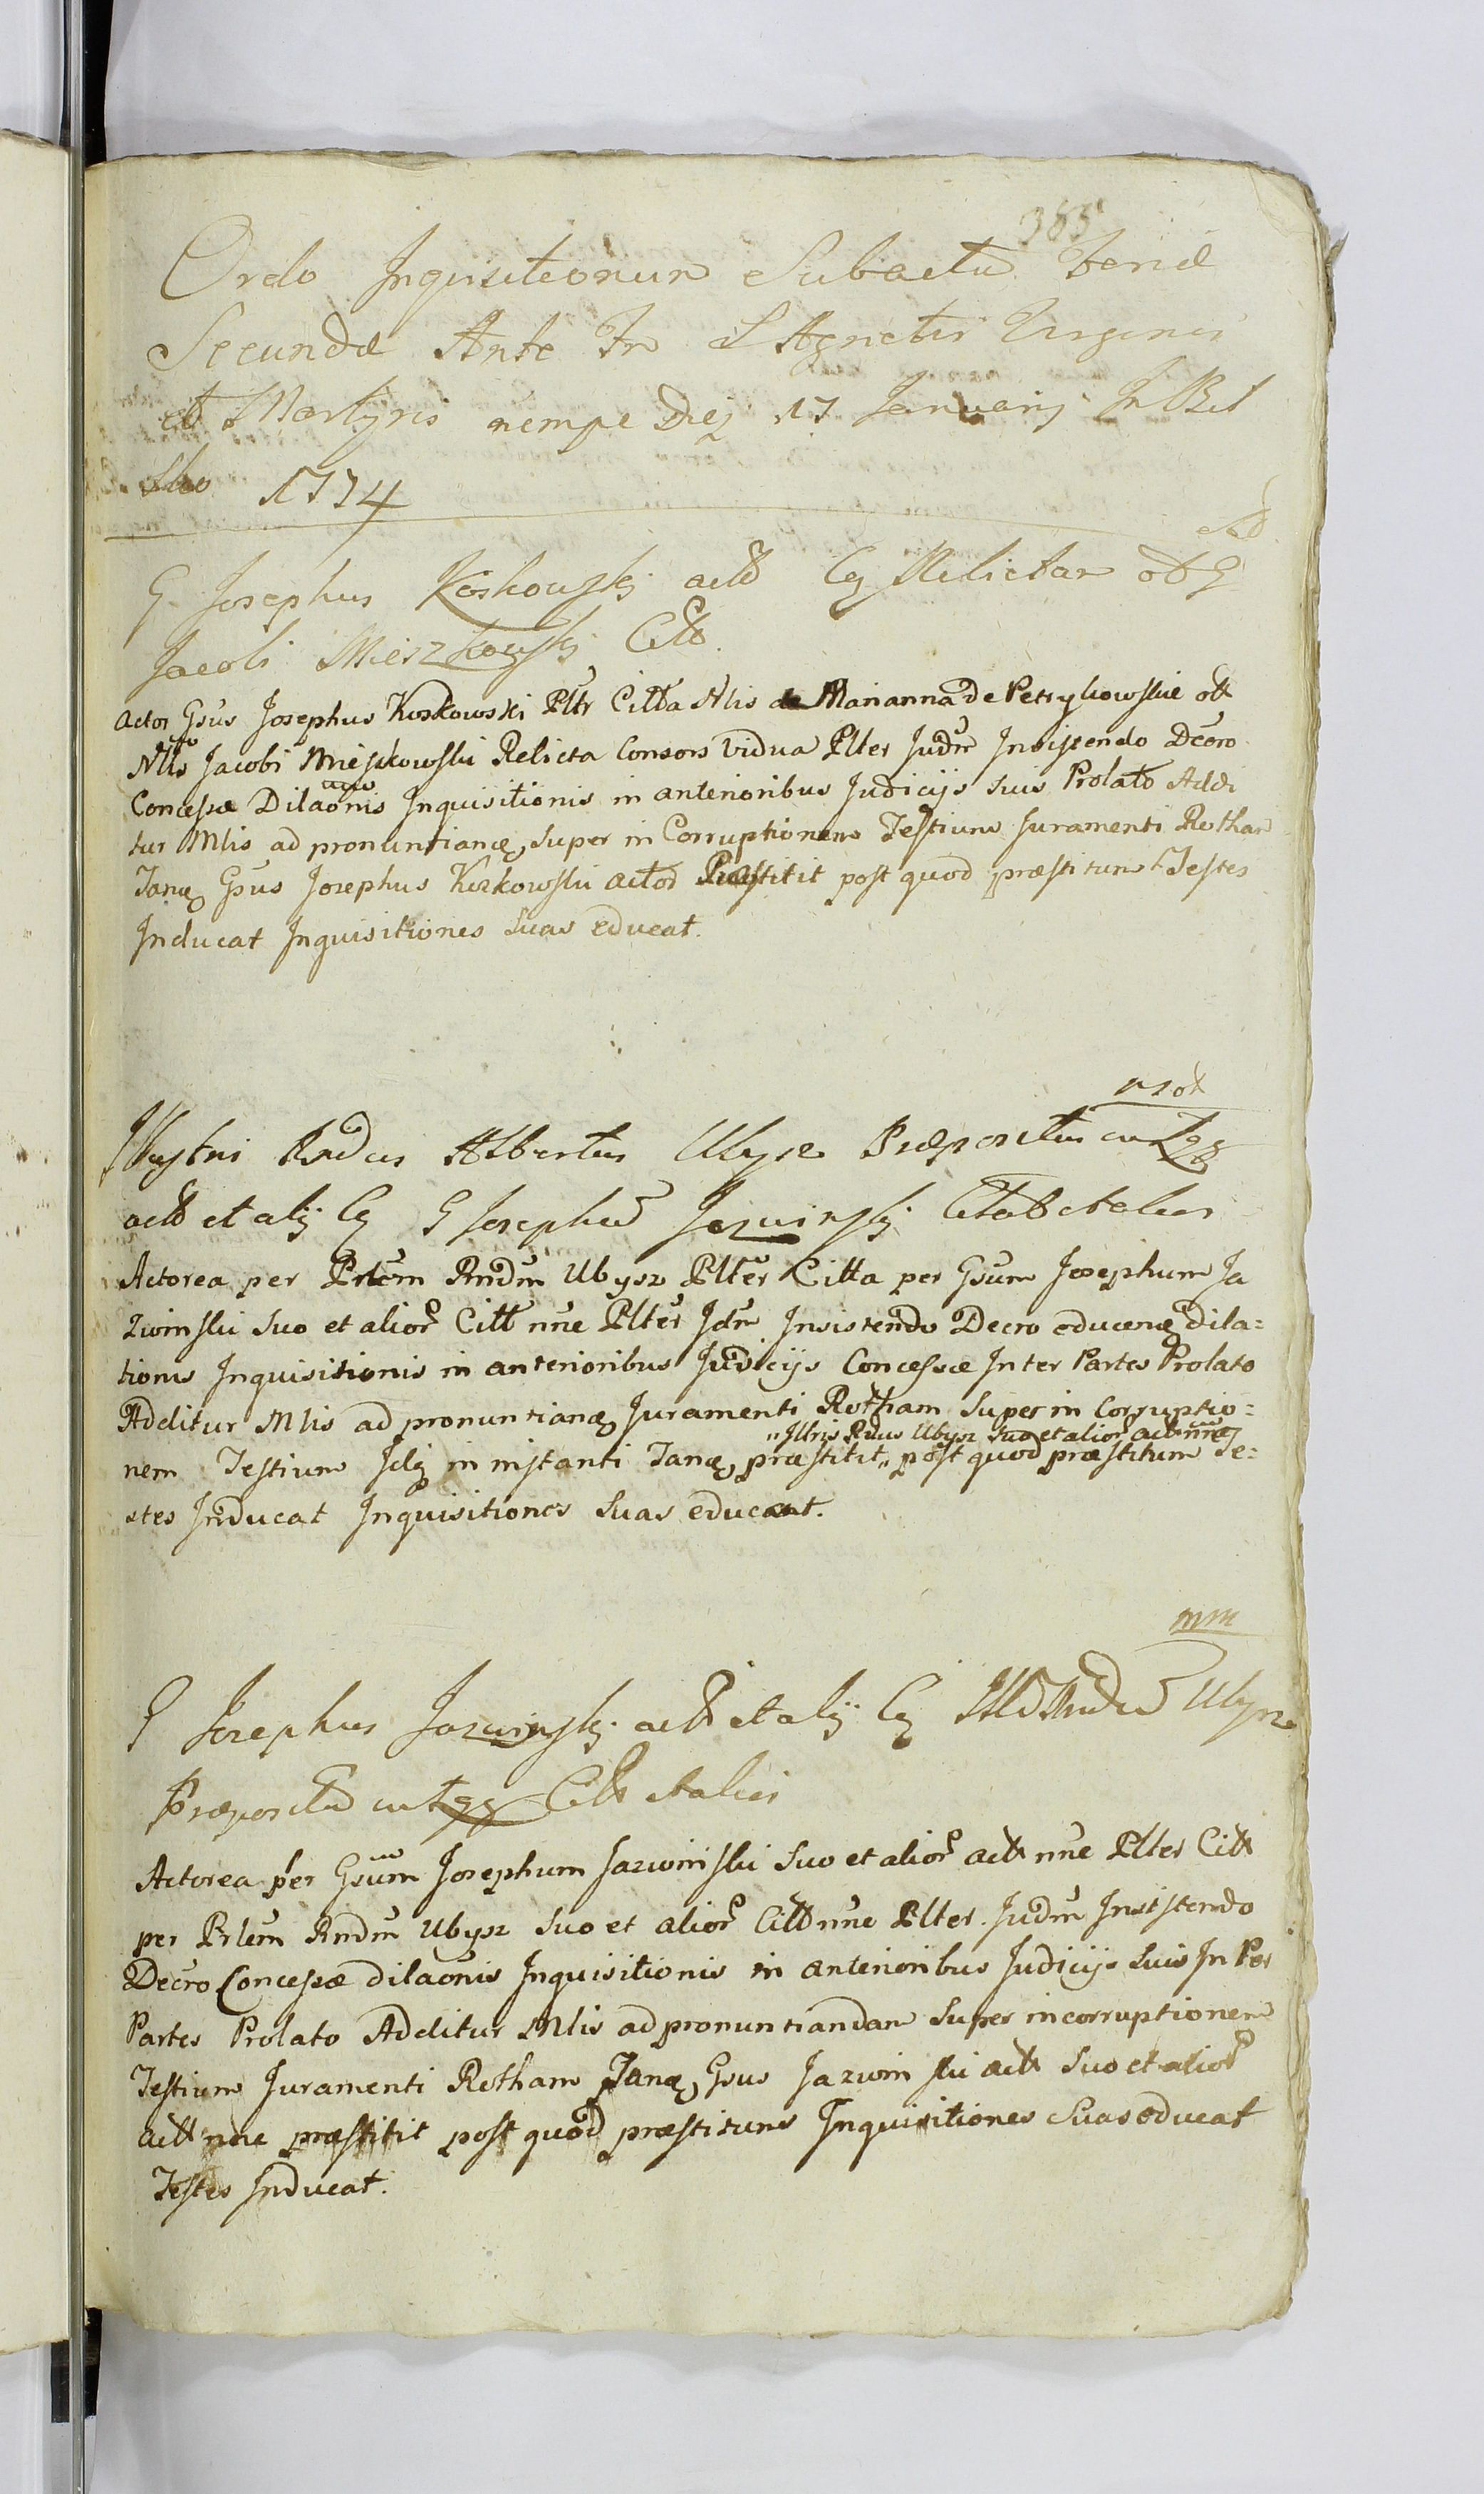 385
Ordo Inquisitionum Subactu Feriæ
Secundæ Ante Fm S Agnetis Virginis
et Martyris nempe Diej 17 Januarij In Bel
sko 1774
G Josephus Koskowskj actt Cq Relictam ott G
Jacobi Mieszkowskj Citt
Actor Gsus Josephus Koskowski Pltr Citta Mlis de Marianna de Petrykowskie ott
Mlis Jacobi Miesckowski Relicta Consors Vidua Plter Judm Insistendo Decro
Concessæ Dilaonis Inquisitionis in anterioribus Judicijs suis Prolato Addi
tur Mlis ad pronuntianq super in Corruptionem Testium Juramenti Rotham
Janq Gsus Josephus Koskowski actor Præstitit post quod præstitum Testes
Inducat Inquisitiones Suas educat.
Illustris Rndus Albertus Ubysz Præpositus
actt et alij Cq G Josephum Jazwinskj Citatt et alios
Actorea per Prlem Rndm Ubysz Plter Citta per Gsum Josephum Ja
zwinski suo et alior Citt nne Plter Jdm Insistendo Decro educenq dila=
tionis Inquisitionis in anterioribus Judicijs Concessæ Inter Partes Prolato
Additur Mlis ad pronuntianq Juramenti Rotham Super in Corruptio=
„Illris Rdus Ubysz Suo et alior act nne
nem Testium Jdq in instanti Janq præstitit„ post quod præstitum Te=
stes Inducat Inquisitiones Suas educant.
mm
G Josephus Jazwinskj actt et alij Cq Illm Rndm Ubysz
Præpositum Citt et alios
Actorea per Gsum Josephum Jazwinski Suo et alior actt nne Plter Citt
per Prlem Rndm Ubysz Suo et alior Citt nne Plter Judm Insistendo
Decro Concessæ dilaonis Inquisitionis in anterioribus Judicijs Suis In Per
Partes Prolato Additur Mlis ad pronuntiandam Super incorruptionem
Testium Juramenti Rotham Janq Gsus Jazwinski actt Suo et alior
actt nne præstitit post quod præstitum Inquisitiones Suas educat
Testes Inducat.